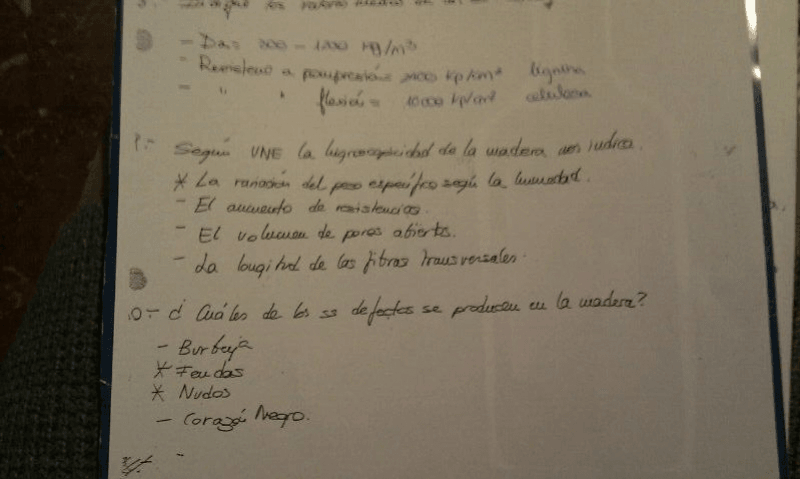 los valores medios de
- Da = 800 - 1200 Kg/m³
- Resistencia a compresión = Kp/cm² lignina
- " " flexión = Kp/cm² celulosa
9.- Según UNE la higroscopicidad de la madera nos indica.
* La variación del peso específico según la humedad.
- El aumento de resistencias.
- El volumen de poros abiertos.
- La longitud de las fibras transversales.
0.- ¿Cuáles de los ss defectos se producen en la madera?
- Burbuja
* Fendas
* Nudos
- Corazón Negro.
-